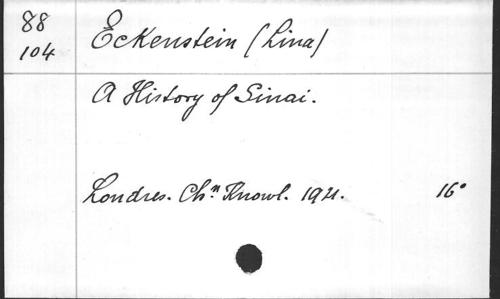 88
104
Eckenstein (Lina)
A History of Sinai.
Londres. Chⁿ Knowl. 1921. 16°